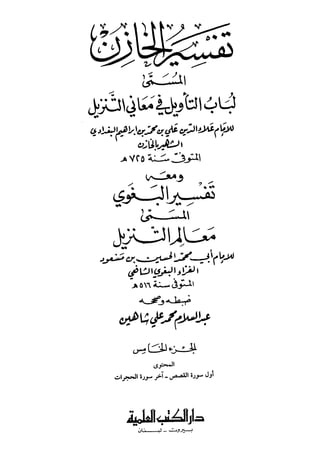 تفسير الخازن
المسمى
لباب التأويل في معاني التنزيل
للإمام علاء الدين علي بن محمد بن إبراهيم البغدادي
الشهير بالخازن
المتوفى سنة ٧٢٥هـ
ومعه
تفسير البغوي
المسمى
معالم التنزيل
للإمام أبي محمد الحسين بن مسعود
الفراء البغوي الشافعي
المتوفى سنة ٥١٦هـ
ضبطه وصححه
عبد السلام محمد علي شاهين
الجزء الخامس
المحتوى
أول سورة القصص - آخر سورة الحجرات
دار الكتب العلمية
بيروت - لبنان